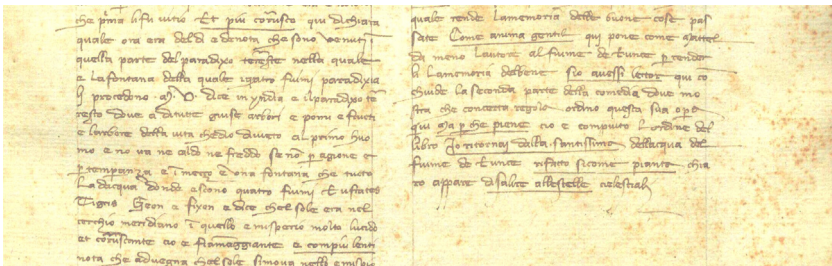 che prima li fu vitio Et piu corusco qui dichiara
quale ora era del di e denota che sono venuti i
quella parte del paradixo terestre nella quale
e la fontana della quale i quatro fiumi paradixia
li procedono dice in yndia e il paradixo te
resto dove a di tute guise arbori e pomi e fructi
e larbore della vita che dio divieto al primo huo
mo e no va ne caldo ne freddo se no
p temperanza e i mezzo e una fontana che tucto
Lad acqua donde escono quatro fiumi Eufrates
Tigris Geon e fixon e dice chel sole era nel
cerchio meridiano i quello emisperio molto lucido
et coruscante cio e fiameggiante e compiu lenti
nota che advegna chel sole si mova nello emispio
quale rende la memoria delle buone cose pas
sate Come anima gentil qui pone come Mattel
da meno lautore al fiume de Eunoe p render
li la memoria del bene Sio avessi letor qui co
chiude la seconda parte della comedia dove mo
stra che concerta regola ordino questa sua opa
qui Ma p che piene cio e compiuto l ordine del
libro Io ritornai dalla santissima dell acqua del
fiume de Eunoe rifatto si come piante chia
ro appare di salire alle stelle celestiali